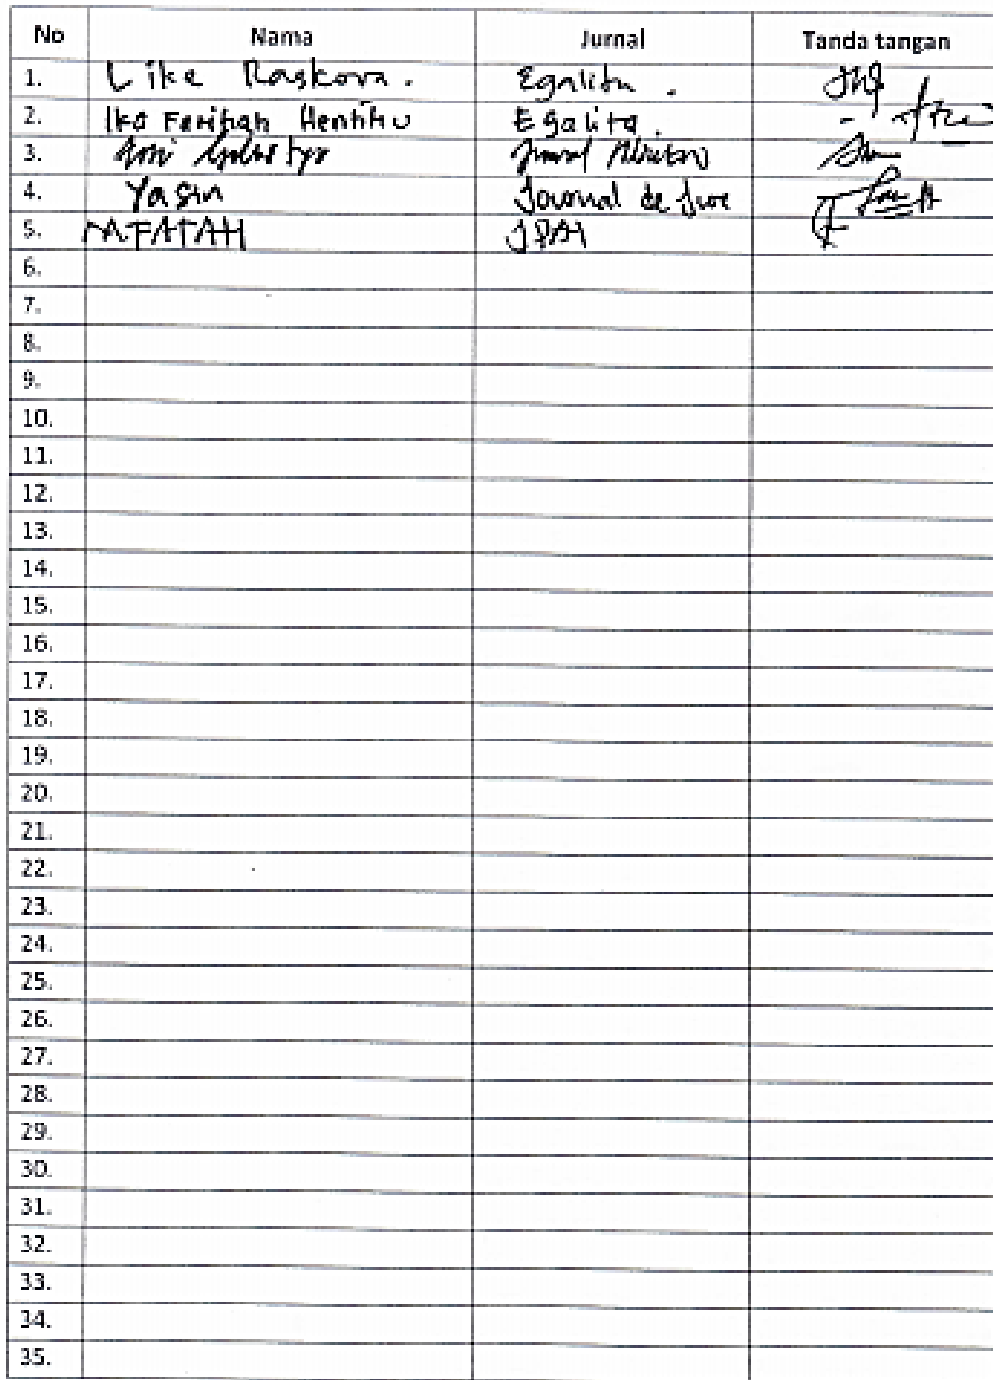 No Nama Jurnal Tanda tangan
1. Like Raskova. Egalita.
2. Ika Farihah Hentihu Egalita.
3. Jurnal
4. Yasin Journal de Jure
5. M.FATAH JPAI
6.
7.
8.
9.
10.
11.
12.
13.
14.
15.
16.
17.
18.
19.
20.
21.
22.
23.
24.
25.
26.
27.
28.
29.
30.
31.
32.
33.
34.
35.